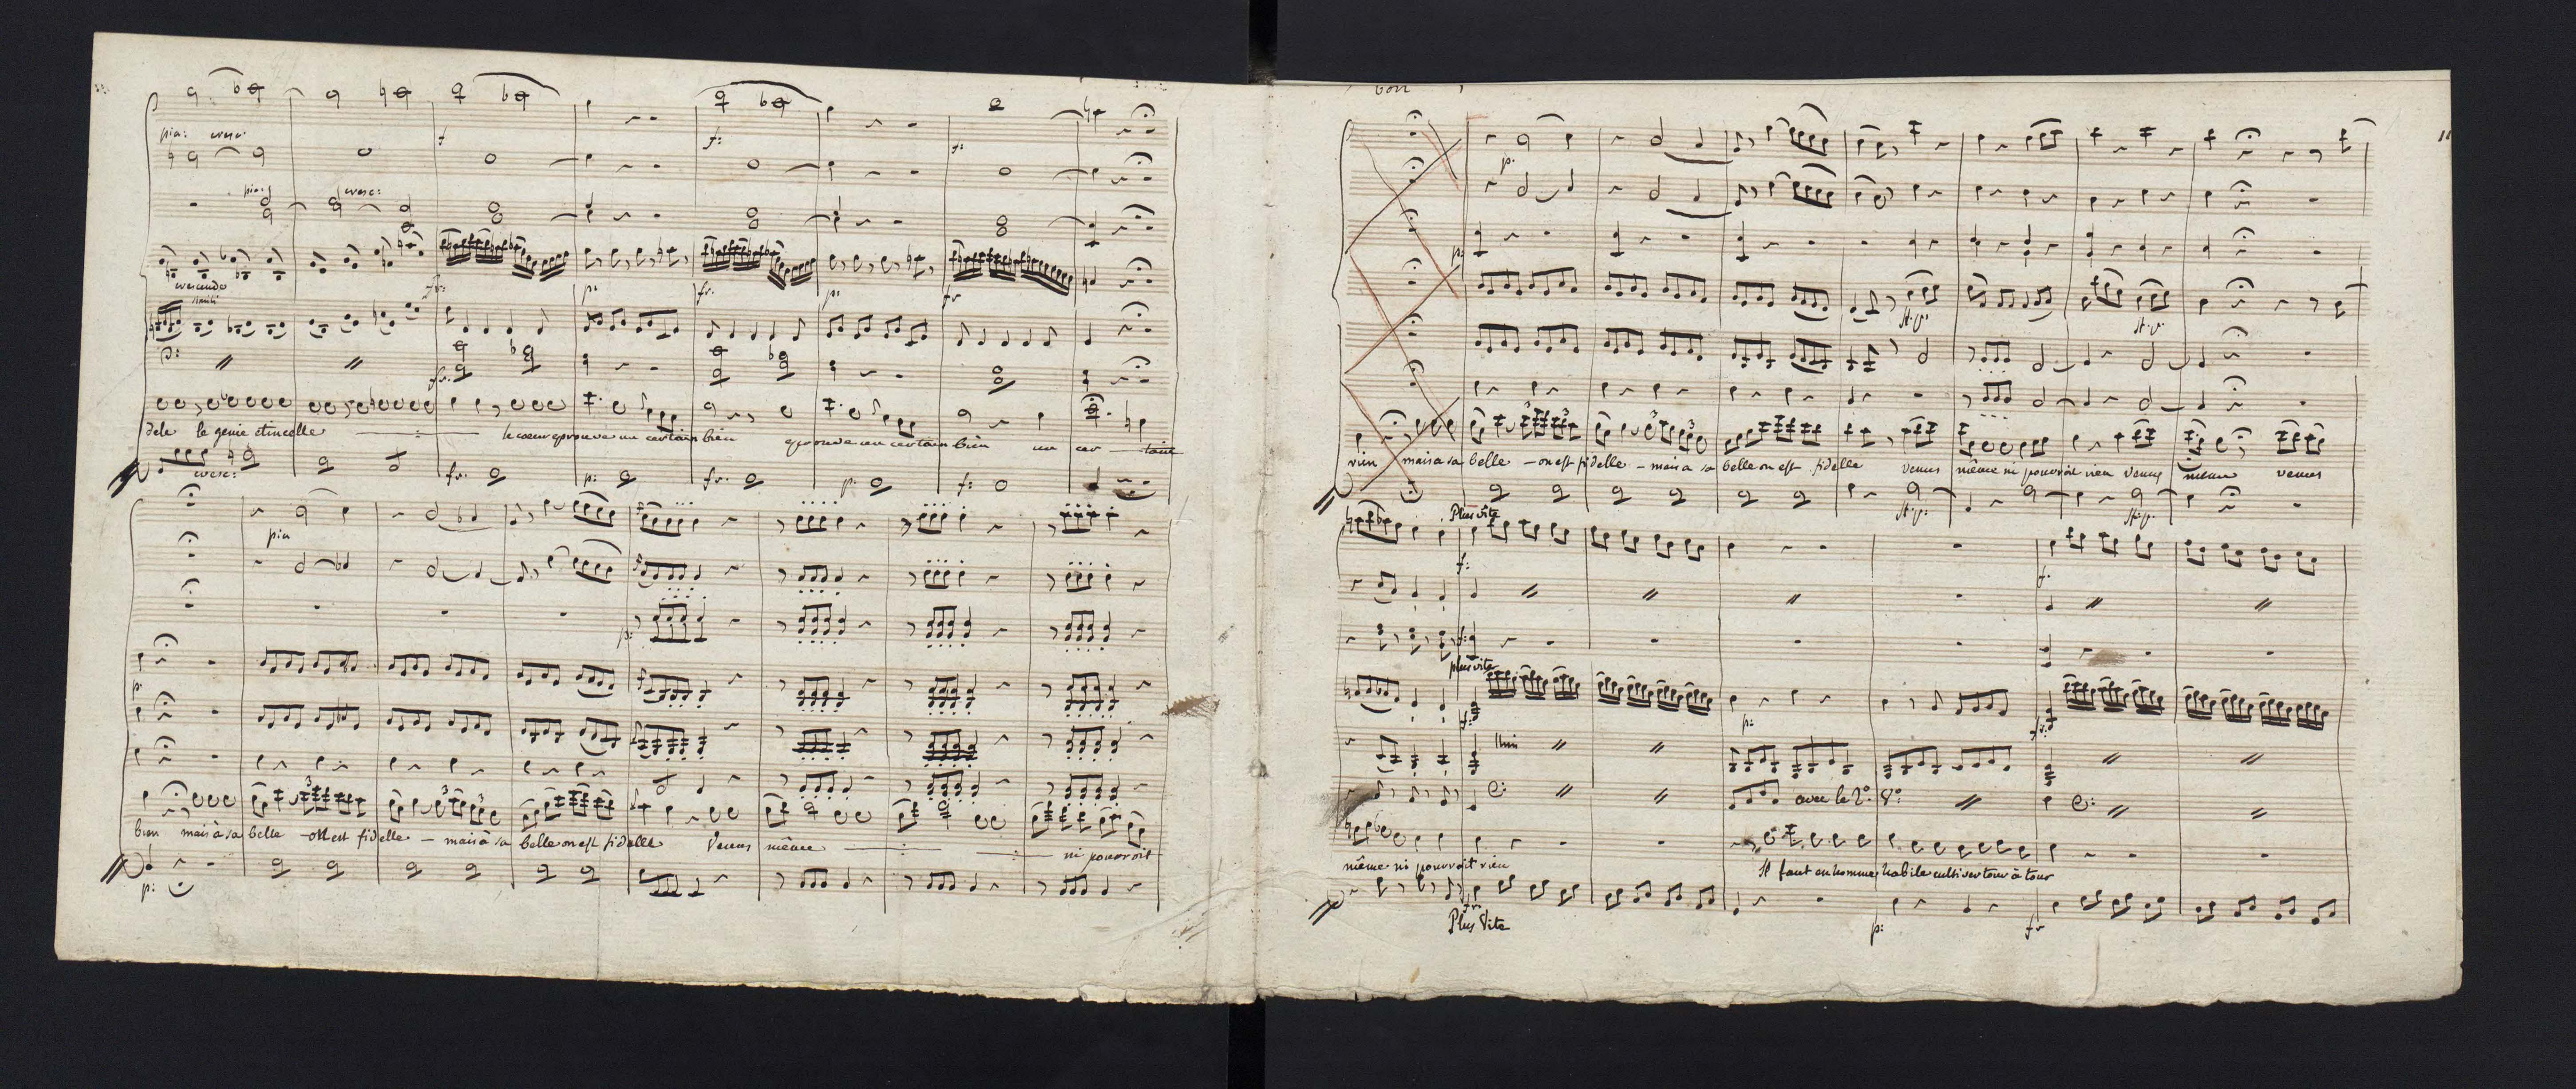 pia: cresc:
f
f:
f:
pia: cresc:
crescendo
simili
fr: p: fr. p: fr
fr.
dele le genie etincelle le cœur eprouve un certain bien eprouve un certain bien un cer tain
cresc: fr. p: fr. p: f: 
pia
p:
p:
bien mais à sa belle - on est fidelle - mais à sa belle on est fidelle Venus même ni pouvroit
p:
bon
11
p.
p:
st.p: st.p.
rien mais a sa belle - on est fidelle - mais a sa belle on est fidelle venus même ni pouvroit rien venus même venus
st.p: st.p.
Plus vite
f: f.
f:
plus vite
f: p: fr:
unis
avec le 2º. Vº:
même ni pouvroit rien Il faut en homme habile cultiver tour à tour
fr
Plus Vite p: fr